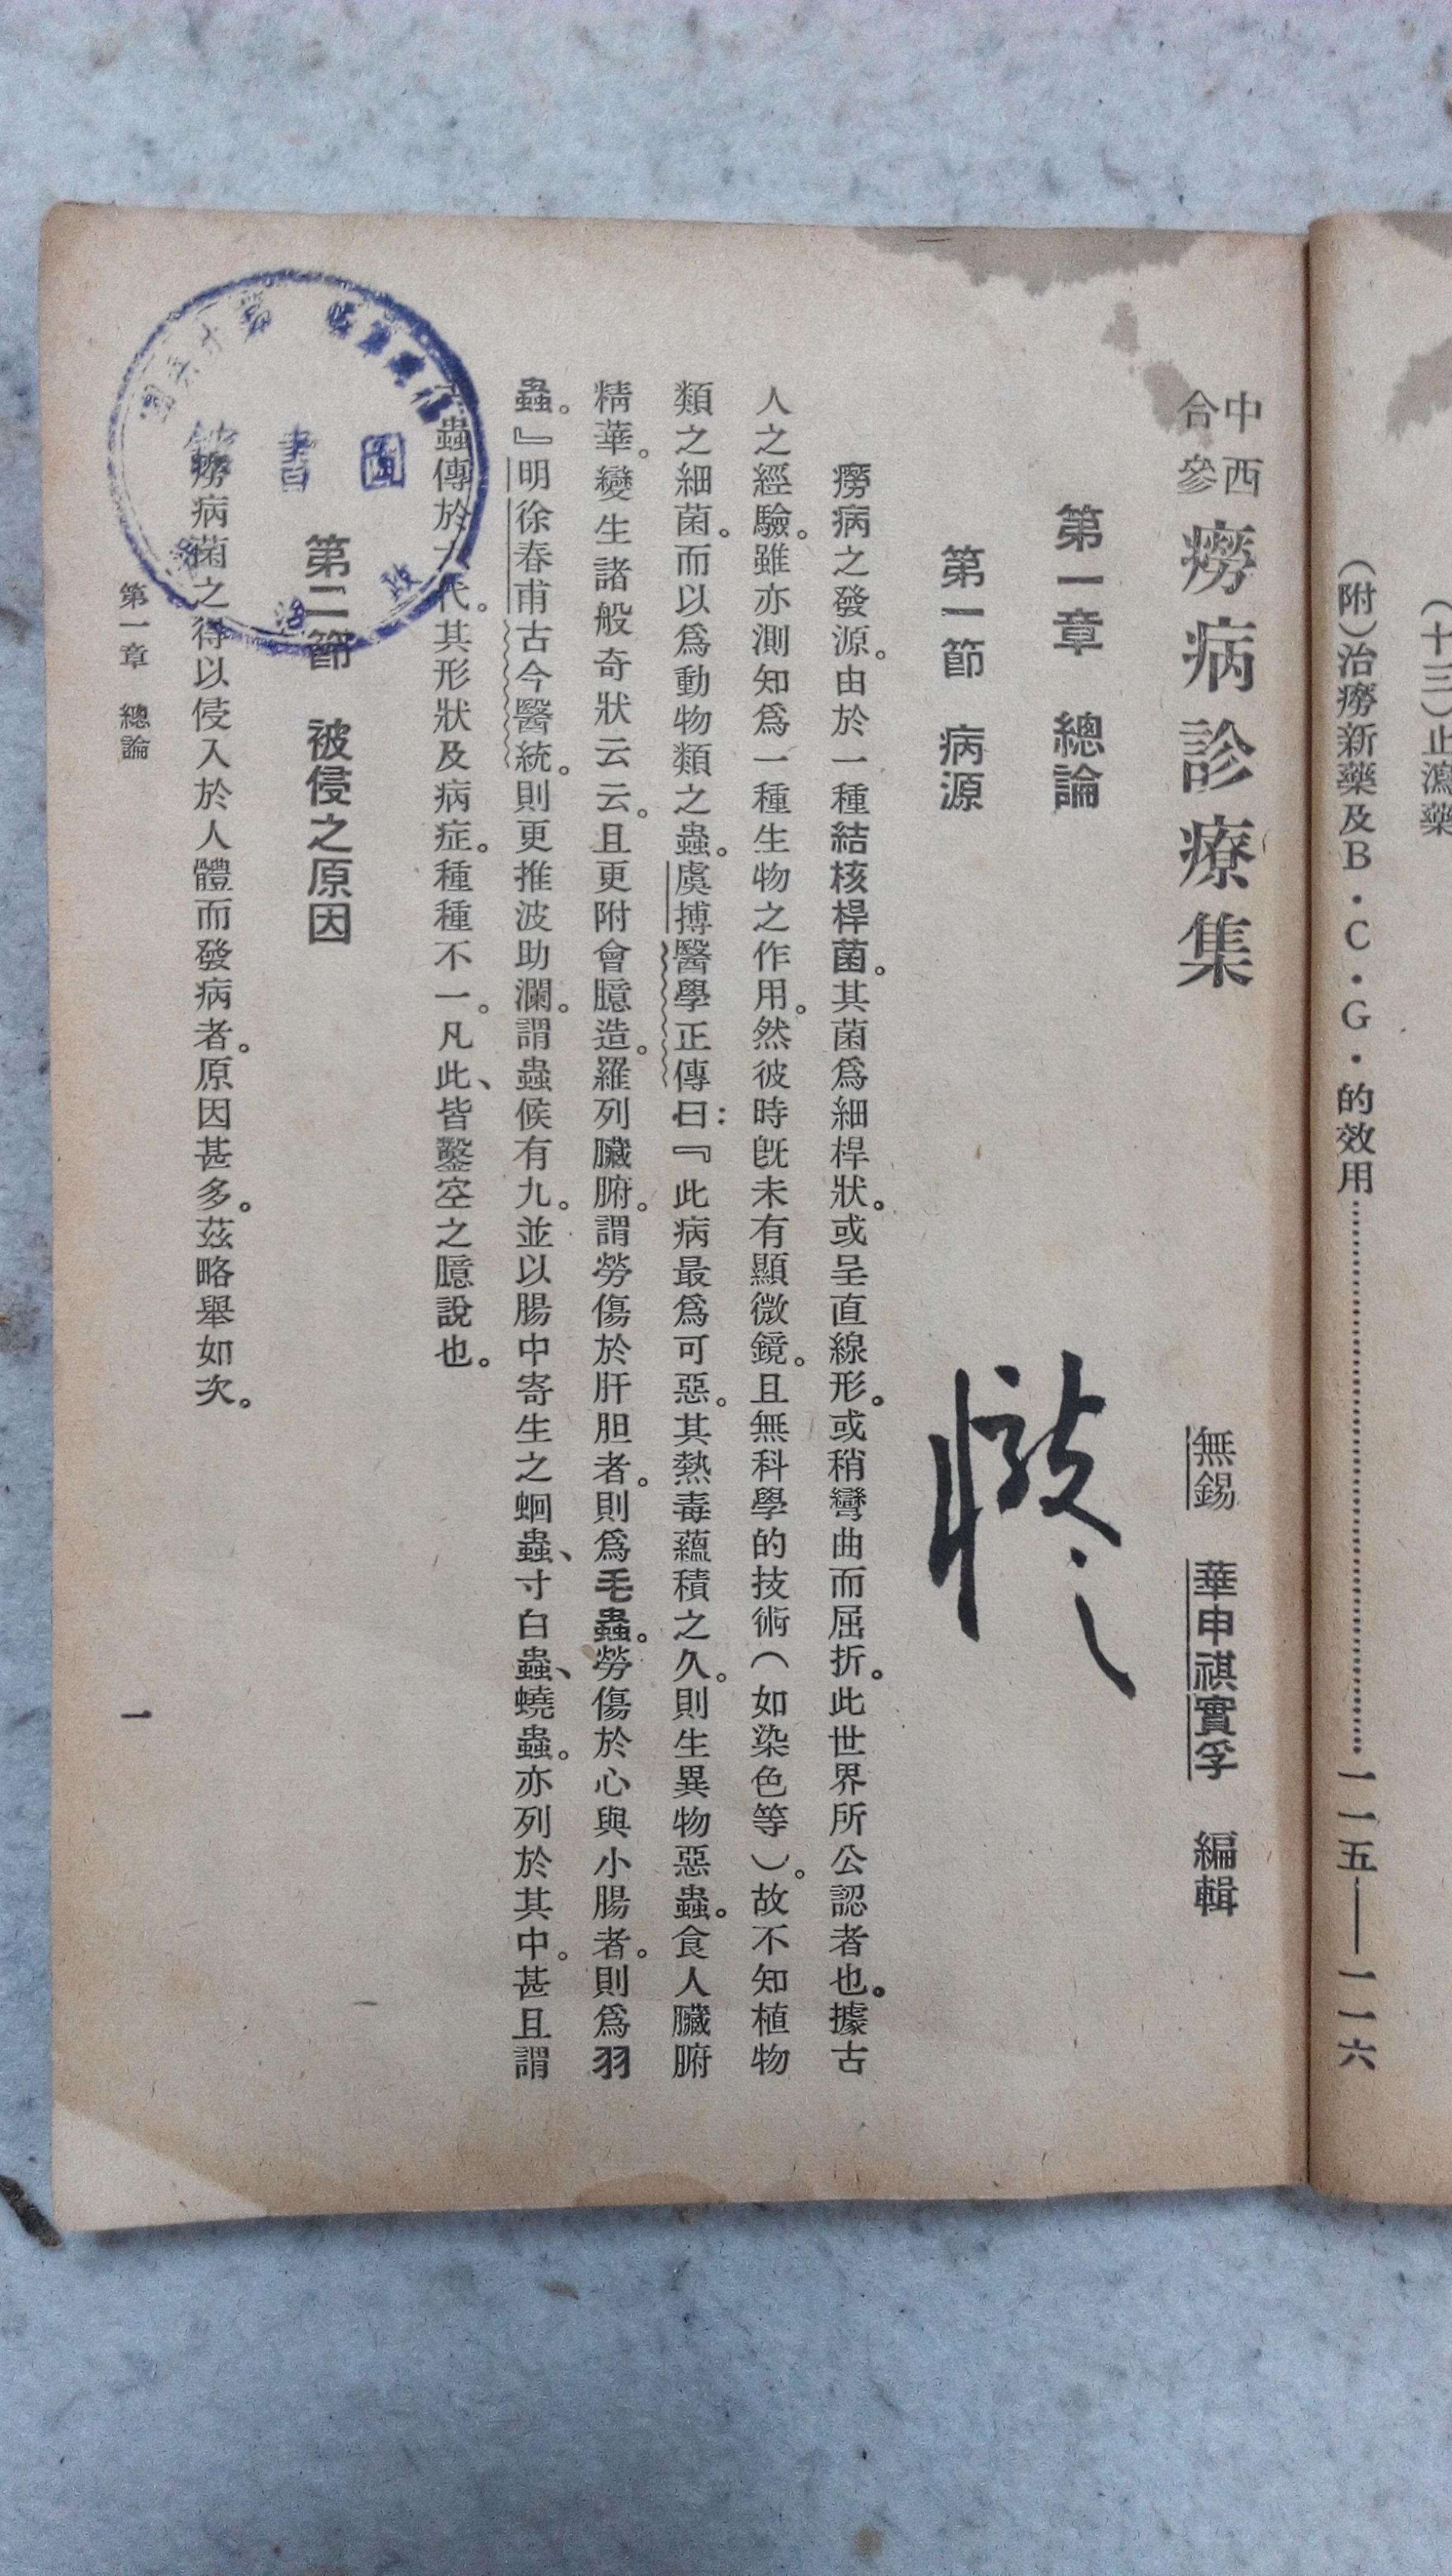 （十三）止瀉藥
（附）治癆新藥及B・C・G・的效用…………一一五——一一六
中西合參 癆病診療集
無錫 華申祺實孚 編輯
第一章 總論
第一節 病源
癆病之發源。由於一種結核桿菌。其菌爲細桿狀。或呈直線形。或稍彎曲而屈折。此世界所公認者也。據古
人之經驗。雖亦測知爲一種生物之作用。然彼時既未有顯微鏡。且無科學的技術（如染色等）。故不知植物
類之細菌。而以爲動物類之蟲。虞搏醫學正傳曰：『此病最爲可惡。其熱毒蘊積之久。則生異物惡蟲。食人臟腑
精華。變生諸般奇狀云云。且更附會臆造。羅列臟腑。謂勞傷於肝胆者。則爲毛蟲。勞傷於心與小腸者。則爲羽
蟲。』明徐春甫古今醫統。則更推波助瀾。謂蟲候有九。並以腸中寄生之蛔蟲、寸白蟲、蟯蟲。亦列於其中。甚且謂
蟲傳於六代。其形狀及病症。種種不一。凡此、皆鑿空之臆說也。
第二節 被侵之原因
癆病菌之得以侵入於人體而發病者。原因甚多。茲略舉如次。
第一章 總論
一
圖書